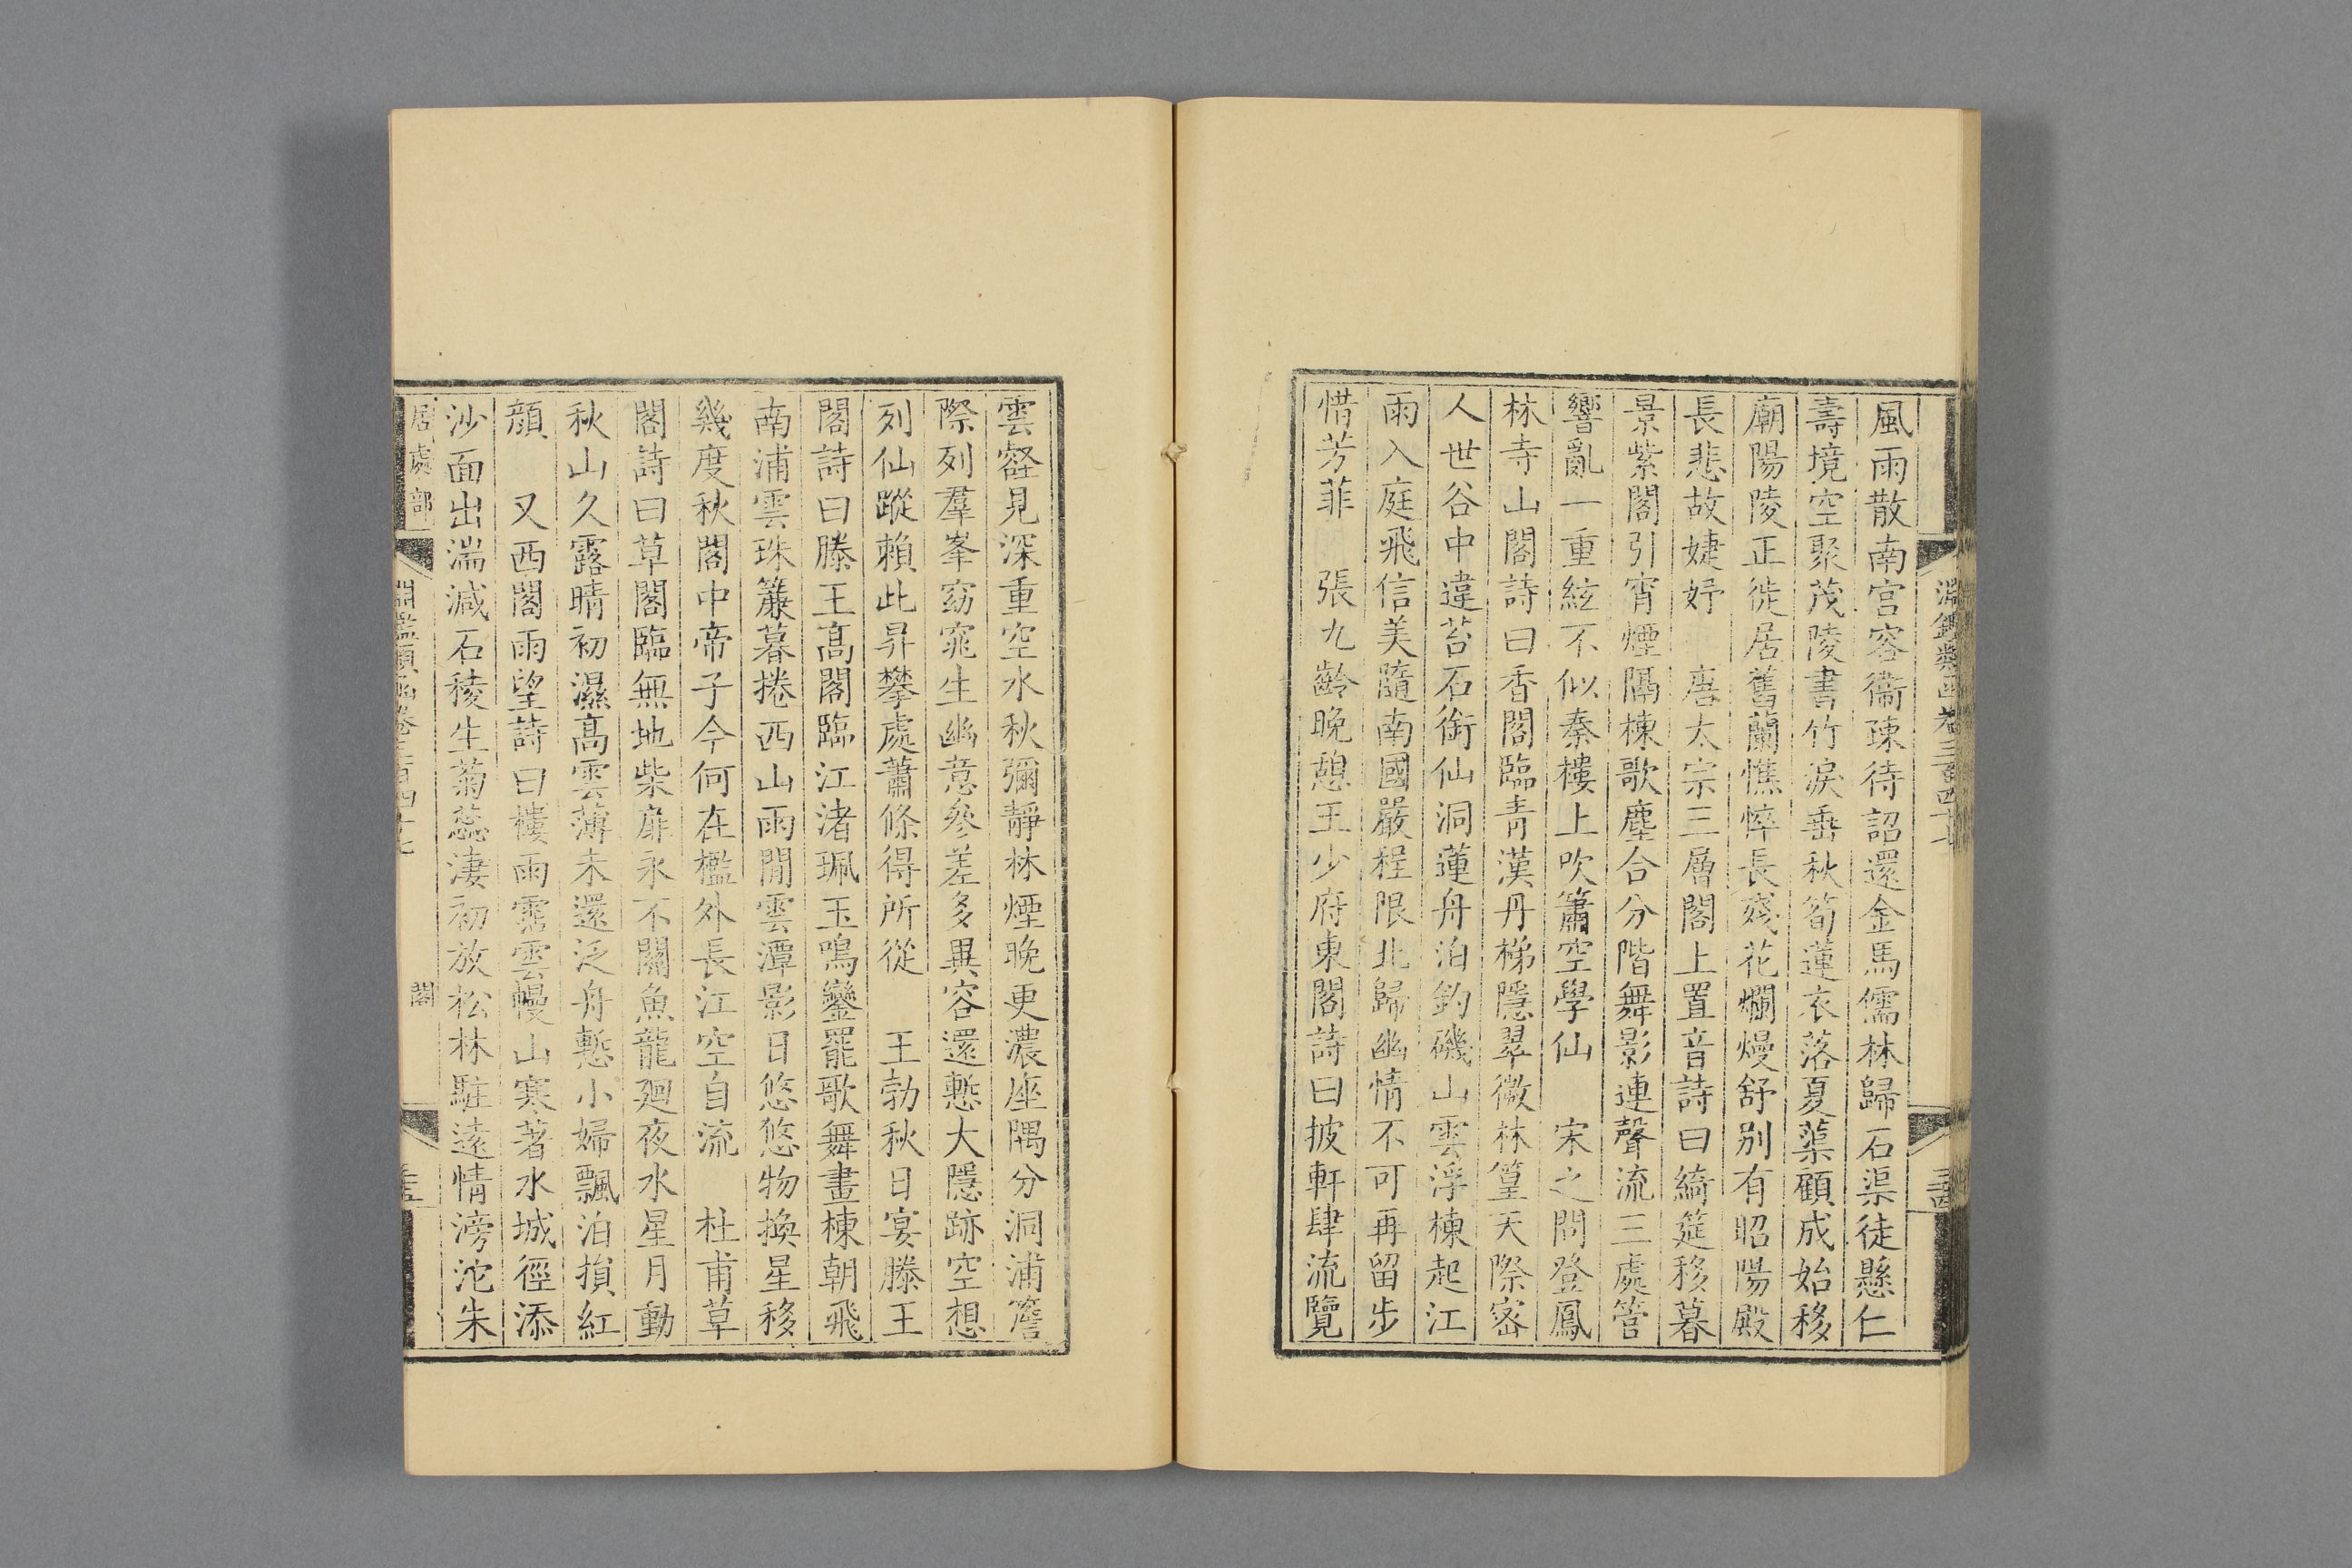 淵鑑類函卷三百四十七
三西
風雨散南宫容衞疎待詔還金馬儒林歸石渠徒懸仁
壽境空聚茂陵書竹淚垂秋筍蓮衣落夏蕖顧成始移
廟陽陵正徙居舊蘭憔悴長殘花爛熳舒別有昭陽殿
長悲故婕妤　唐太宗三層閣上置音詩曰綺筵移暮
景紫閣引宵煙隔棟歌塵合分階舞影連聲流三處管
響亂一重絃不似秦樓上吹簫空學仙　宋之問登鳳
林寺山閣詩曰香閣臨青漢丹梯隱翠微林篁天際密
人世谷中違苔石銜仙洞蓮舟泊釣磯山雲浮棟起江
雨入庭飛信美隨南國嚴程限北歸幽情不可再留步
惜芳菲　張九齡晚憩王少府東閣詩曰披軒肆流覽
雲壑見深重空水秋彌靜林煙晚更濃座隅分洞浦簷
際列羣峯窈窕生幽意參差多異容還慙大隱跡空想
列仙蹤賴此昇攀處蕭條得所從　王勃秋日宴滕王
閣詩曰滕王髙閣臨江渚珮玉鳴鑾罷歌舞畫棟朝飛
南浦雲珠簾暮捲西山雨閒雲潭影日悠悠物換星移
幾度秋閣中帝子今何在檻外長江空自流　杜甫草
閣詩曰草閣臨無地柴扉永不關魚龍廻夜水星月動
秋山久露晴初濕髙雲薄未還泛舟慙小婦飄泊損紅
顔　又西閣雨望詩曰樓雨霑雲幔山寒著水城徑添
沙面出湍減石稜生菊蕊淒初放松林駐遠情滂沱朱
居處部
淵鑑類函卷三百四十七
閣